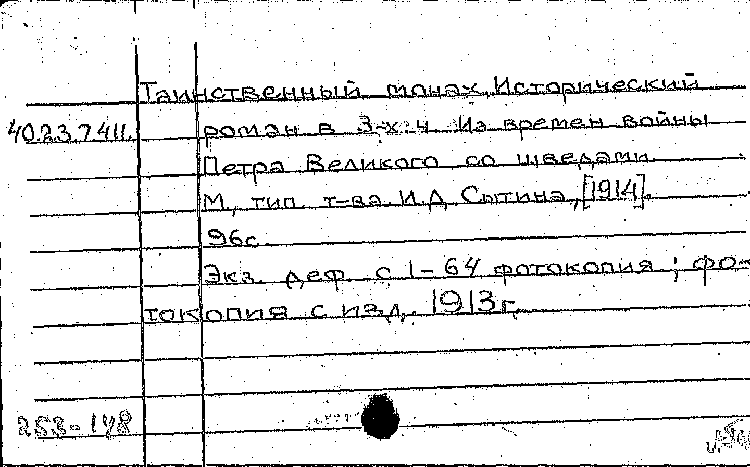 Таинственный монах. Исторический
40.23.7411. роман в 3-х ч. Из времен войны
Петра Великого со шведами
М., тип. т-ва И.Д. Сытина, [1914].
96с.
Экз. деф. с 1-64 фотокопия; фо-
токопия с изд. 1913г.
253-148